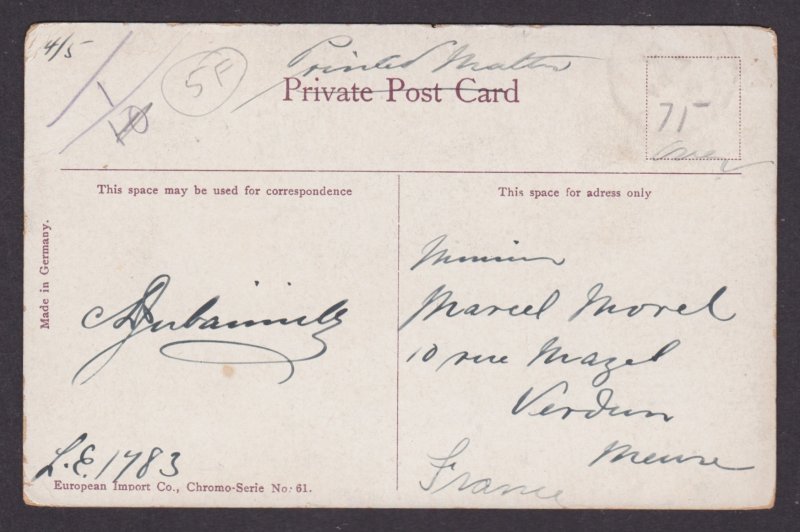 4/5
1
10
5F
Printed Matter
Private Post Card
71
This space may be used for correspondence
This space for adress only
Made in Germany.
Marcel Morel
10 rue Mazel
Verdun
Meuse
France
L.E. 1783
European Import Co., Chromo-Serie No: 61.